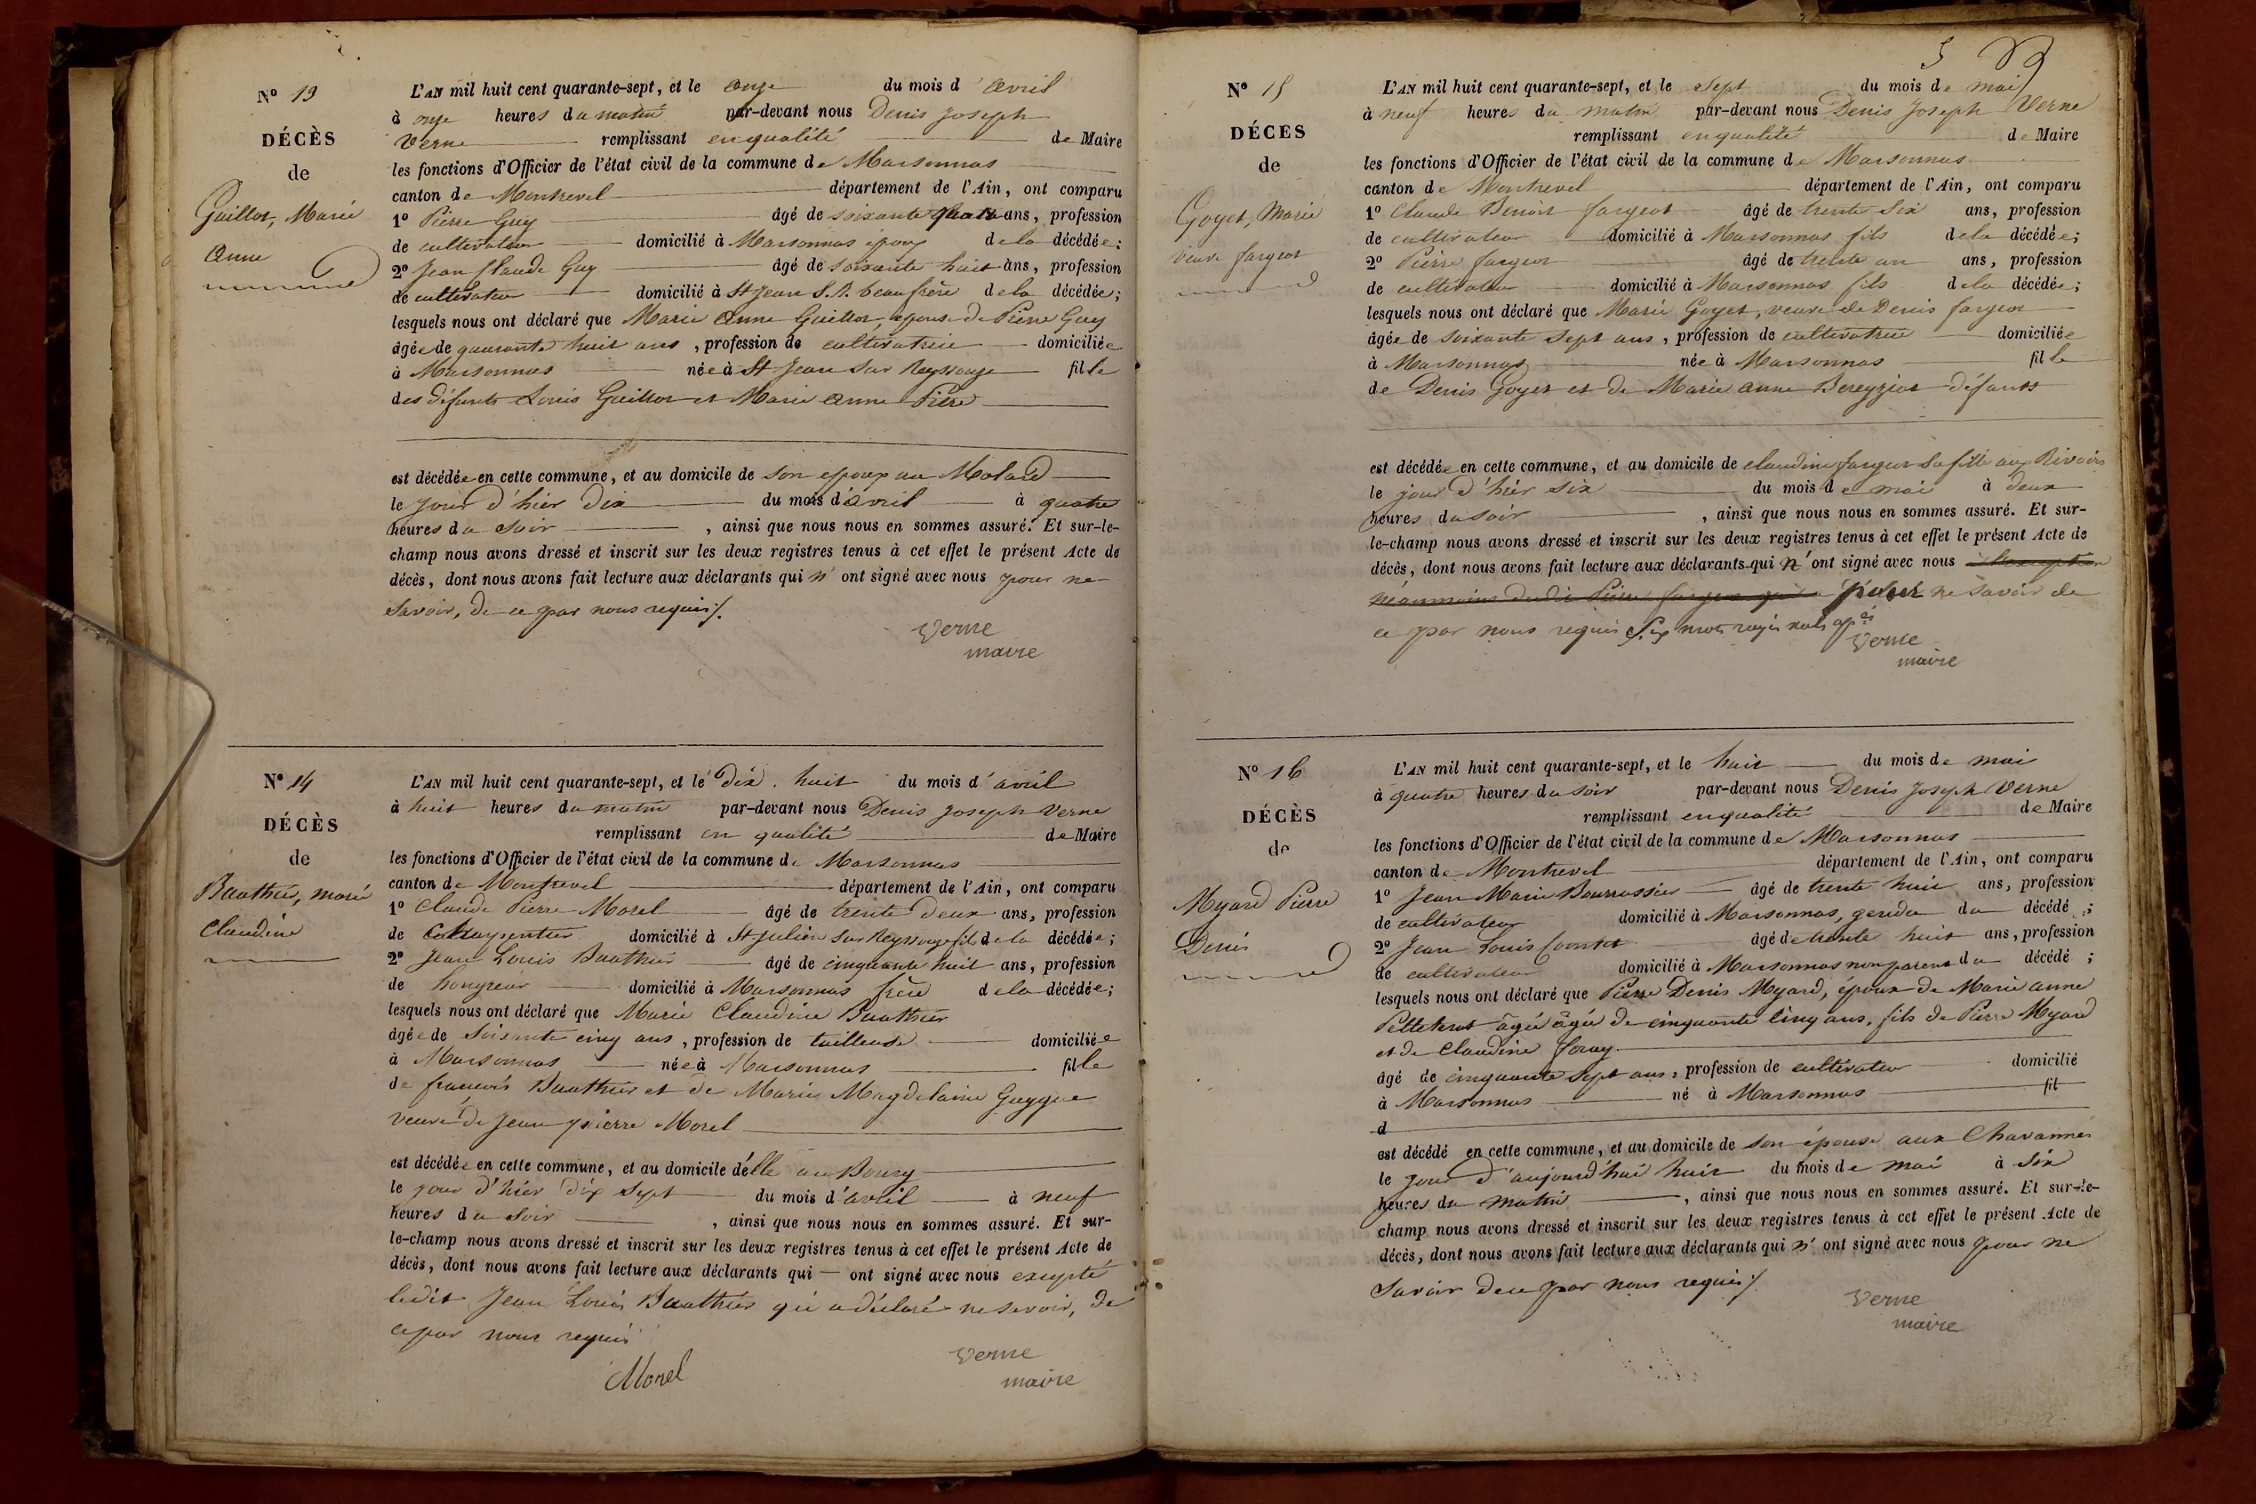 Nº 13
DÉCÈS
de
Guillot, Marie
Anne
L'AN mil huit cent quarante-sept, et le onze du mois d'avril
à onze heures du matin par-devant nous Denis Joseph
Verne remplissant en qualité de Maire
les fonctions d'Officier de l'état civil de la commune de Marsonnas
canton de Montrevel département de l'Ain, ont comparu
1º Pierre Guy âgé de soixante ans, profession
de cultivateur domicilié à Marsonnas époux de la décédée;
2º Jean Claude Guy âgé de soixante huit ans, profession
de cultivateur domicilié à St Jean S. R. beau frère de la décédée;
lesquels nous ont déclaré que Marie Anne Guillot, épouse de Pierre Guy
âgée de quarante huit ans, profession de cultivatrice domiciliée
à Marsonnas née à St Jean sur Reyssouze fille
des défunts Louis Guillot et Marie Anne Pière
est décédée en cette commune, et au domicile de son époux au Molard
le jour d'hier dix du mois d'avril à quatre
heures du soir, ainsi que nous nous en sommes assuré. Et sur-le-
champ nous avons dressé et inscrit sur les deux registres tenus à cet effet le présent Acte de
décès, dont nous avons fait lecture aux déclarants qui n'ont signé avec nous pour ne
savoir, de ce par nous requis/.
Verne
maire
Nº 14
DÉCÈS
de
Bauthier, marie
Claudine
L'AN mil huit cent quarante-sept, et le dix. huit du mois d'avril
à huit heures du matin par-devant nous Denis Joseph Verne
remplissant en qualité de Maire
les fonctions d'Officier de l'état civil de la commune de Marsonnas
canton de Montrevel département de l'Ain, ont comparu
1º Claude Pierre Morel âgé de trente deux ans, profession
de domicilié à St Julien sur Reyssouze fils de la décédée;
2º Jean Louis Bauthier âgé de cinquante huit ans, profession
de hongreur domicilié à Marsonnas frère de la décédée;
lesquels nous ont déclaré que Marie Claudine Bauthier
âgée de soixante cinq ans, profession de tailleuse domiciliée
à Marsonnas née à Marsonnas fille
de françois Bauthier et de Marie Magdelaine Guygue
veuve de Jean pierre Morel
est décédée en cette commune, et au domicile d'elle au Bourg
le jour d'hier dix sept du mois d'avril à neuf
heures du soir, ainsi que nous nous en sommes assuré. Et sur-
le-champ nous avons dressé et inscrit sur les deux registres tenus à cet effet le présent Acte de
décès, dont nous avons fait lecture aux déclarants qui — ont signé avec nous excepté
ledit Jean Louis Bauthier qui a déclaré ne savoir, de
ce par nous requis
Morel
Verne
maire
5
Nº 15
DÉCES
de
Goyet, Marie
veuve fargeot
L'AN mil huit cent quarante-sept, et le sept du mois de mai
à neuf heures du matin par-devant nous Denis Joseph Verne
remplissant en qualité de Maire
les fonctions d'Officier de l'état civil de la commune de Marsonnas
canton de Montrevel département de l'Ain, ont comparu
1º Claude Benoit fargeot âgé de trente six ans, profession
de cultivateur domicilié à Marsonnas fils de la décédée;
2º Pierre fargeot âgé de trente un ans, profession
de cultivateur domicilié à Marsonnas fils de la décédée;
lesquels nous ont déclaré que Marie Goyet, veuve de Denis fargeot
âgée de soixante sept ans, profession de cultivatrice domiciliée
à Marsonnas née à Marsonnas fille
de Denis Goyet et de Marie anne Bereyziat défunts
est décédée en cette commune, et au domicile de claudine fargeot sa fille aux Rivoirs
le jour d'hier six du mois de mai à deux
heures du soir, ainsi que nous nous en sommes assuré. Et sur-
le-champ nous avons dressé et inscrit sur les deux registres tenus à cet effet le présent Acte de
décès, dont nous avons fait lecture aux déclarants qui n'ont signé avec nous
néanmoins dudit Pierre fargeot pour ne savoir de
ce par nous requis Six mots rayés nuls
Verne
maire
Nº 16
DÉCÈS
de
Myard Pierre
Denis
L'AN mil huit cent quarante-sept, et le huit du mois de mai
à quatre heures du soir par-devant nous Denis Joseph Verne
remplissant en qualité de Maire
les fonctions d'Officier de l'état civil de la commune de Marsonnas
canton de Montrevel département de l'Ain, ont comparu
1º Jean Marie âgé de trente huit ans, profession
de cultivateur domicilié à Marsonnas, gendre du décédé;
2º Jean Louis Comtet âgé de trente huit ans, profession
de cultivateur domicilié à Marsonnas non parent du décédé;
lesquels nous ont déclaré que Pierre Denis Myard, époux de Marie anne
âgée âgée de cinquante cinq ans, fils de Pierre Myard
et de Claudine foray
âgé de cinquante sept ans, profession de cultivateur domicilié
à Marsonnas né à Marsonnas fil
d
est décédé en cette commune, et au domicile de son épouse aux Chavannes
le jour d'aujourd'hui huit du mois de mai à six
heures du matin, ainsi que nous nous en sommes assuré. Et sur-le-
champ nous avons dressé et inscrit sur les deux registres tenus à cet effet le présent Acte de
décès, dont nous avons fait lecture aux déclarants qui n'ont signé avec nous pour ne
savoir de ce par nous requis/.
Verne
maire